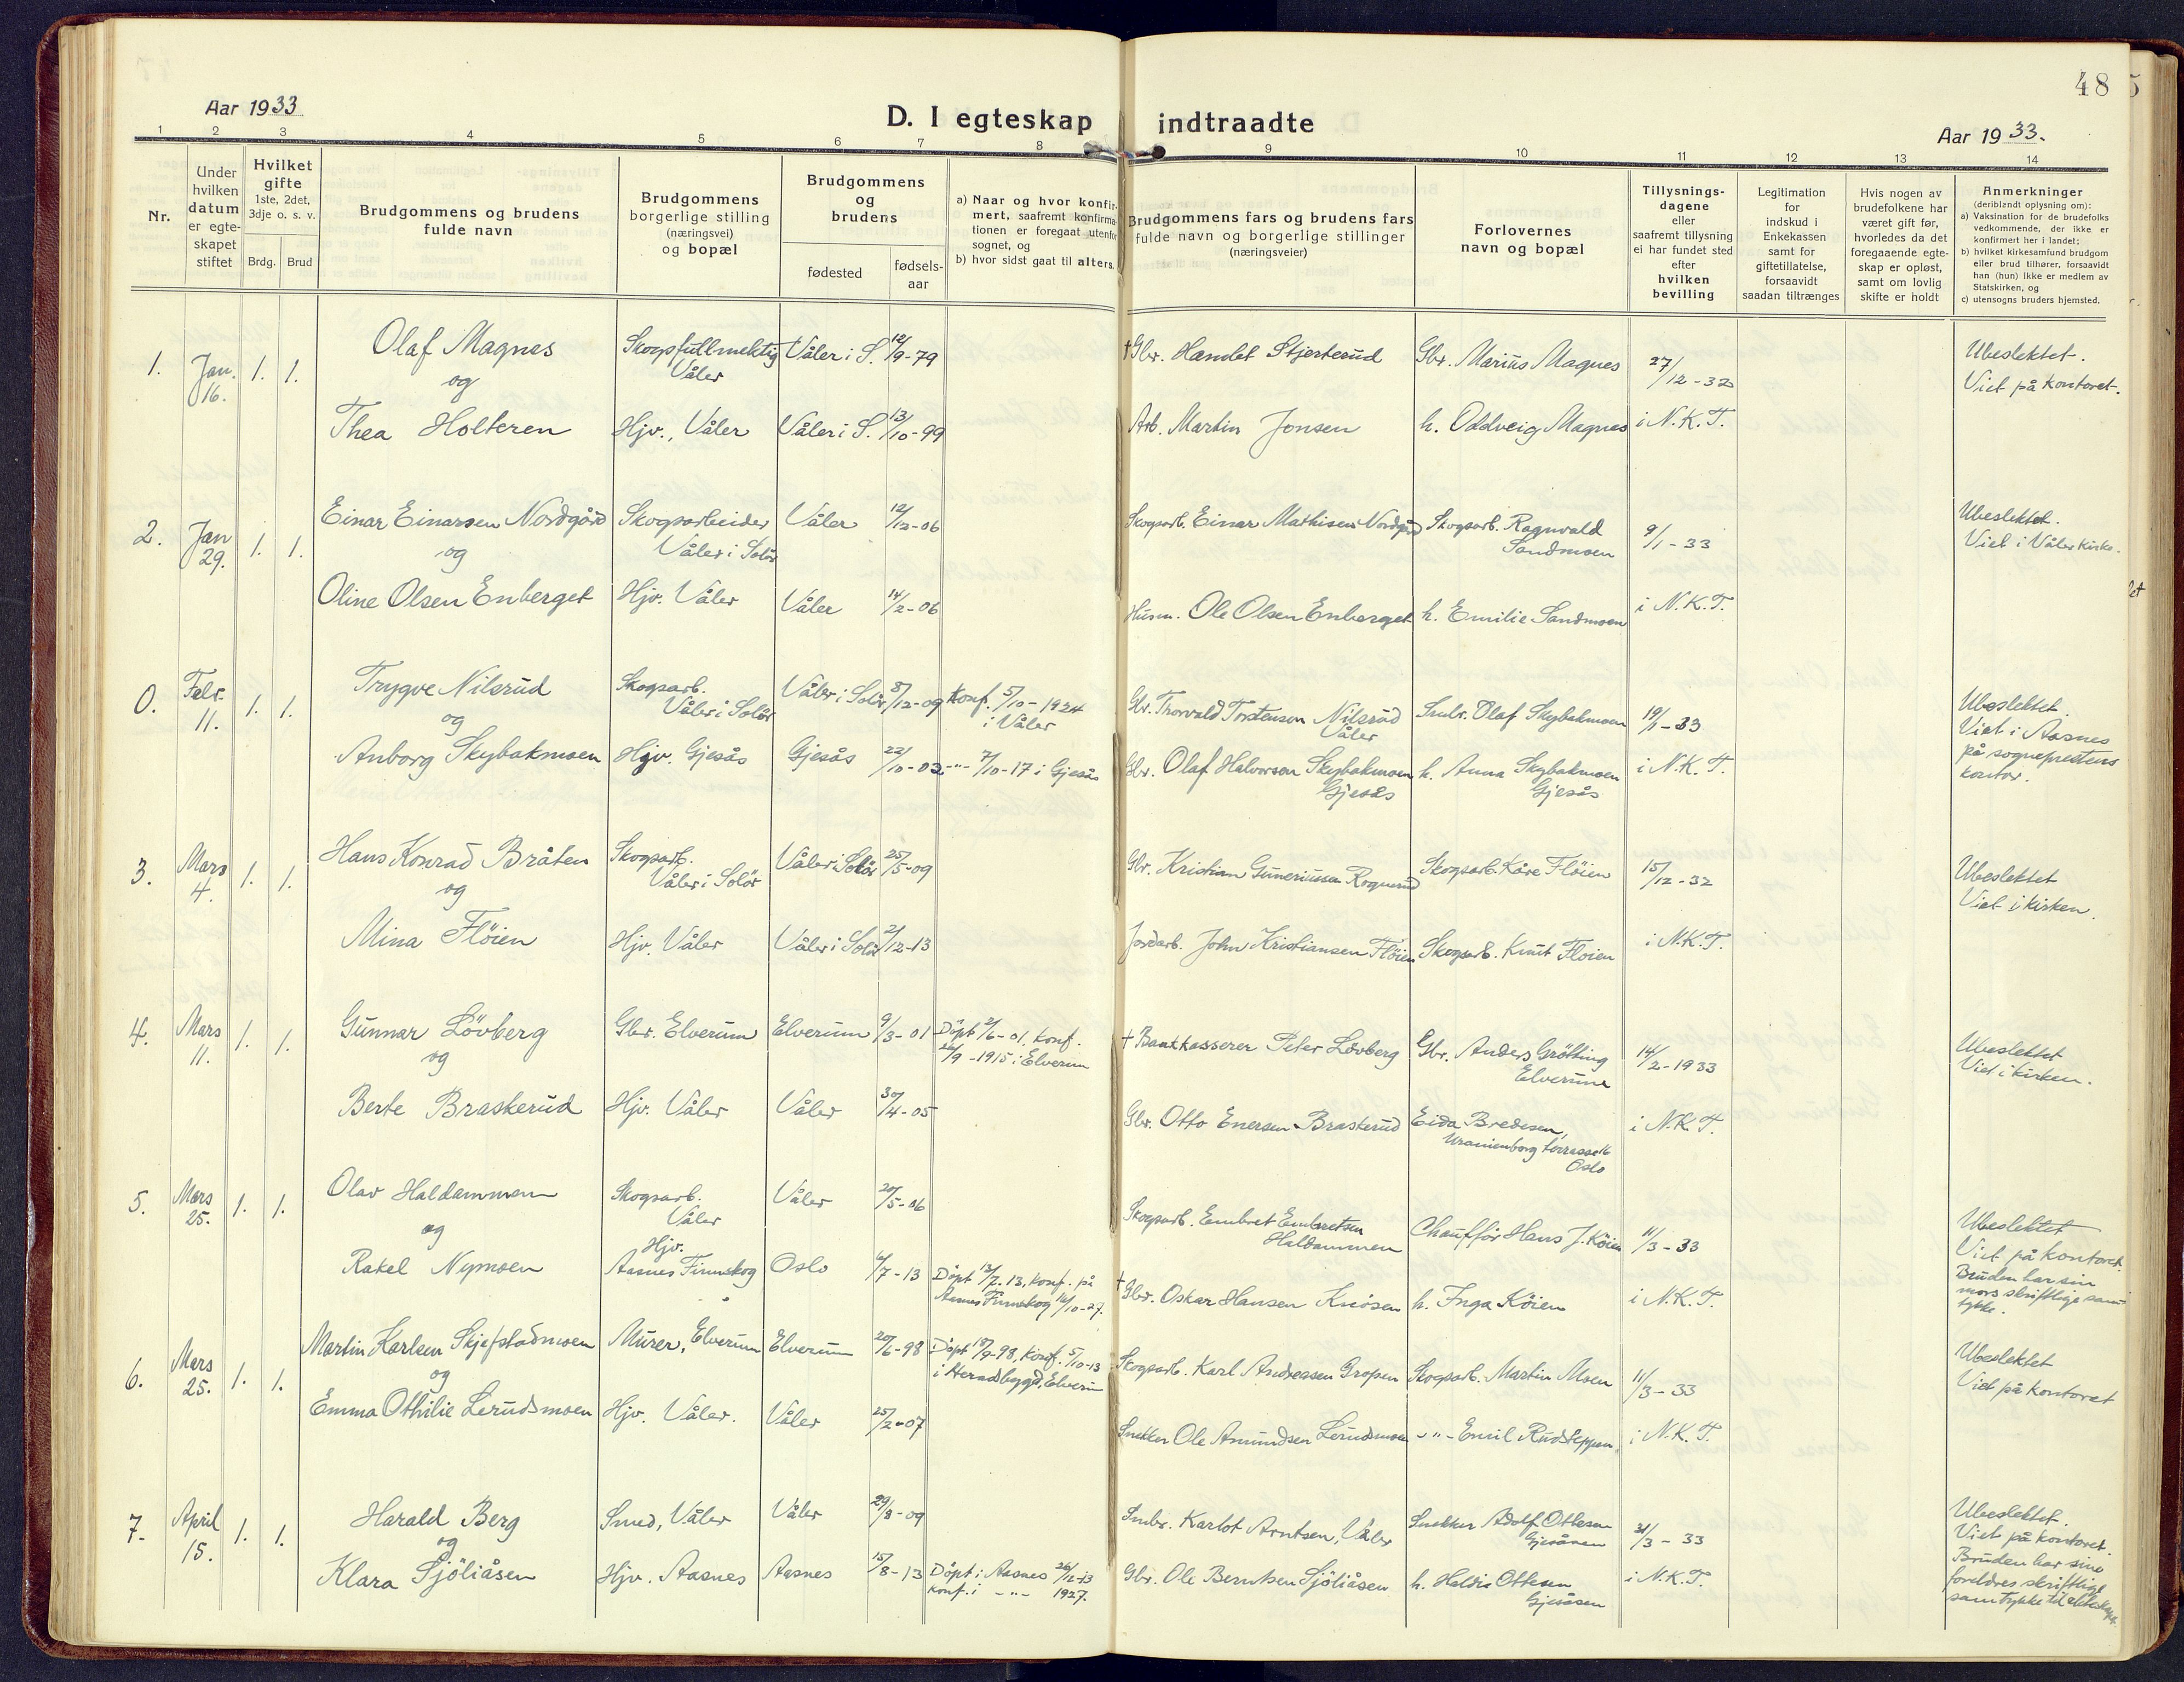 48
Aar 1933
D. I egteskap indtraadte
Aar 1933.
1 2 3 4 5 6 7 8 9 10 11 12 13 14
Nr.
Under hvilken datum er egte-skapet stiftet
Hvilket gifte 1ste, 2det, 3dje o. s. v.
Brdg. Brud
Brudgommens og brudens fulde navn
Brudgommens borgerlige stilling (næringsvei) og bopæl
Brudgommens og brudens
fødested
fødsels-aar
a) Naar og hvor konfir-mert, saafremt konfirma-tionen er foregaat utenfor sognet, og
b) hvor sidst gaat til alters.
Brudgommens fars og brudens fars fulde navn og borgerlige stillinger (næringsveier)
Forlovernes navn og bopæl
Tillysnings-dagene eller saafremt tillysning ei har fundet sted efter hvilken bevilling
Legitimation for indskud i Enkekassen samt for giftetillatelse, forsaavidt saadan tiltrænges
Hvis nogen av brudefolkene har været gift før, hvorledes da det foregaaende egte-skap er opløst, samt om lovlig skifte er holdt
Anmerkninger
(deriblandt oplysning om):
a) Vaksination for de brudefolks vedkommende, der ikke er konfirmert her i landet;
b) hvilket kirkesamfund brudgom eller brud tilhører, forsaavidt han (hun) ikke er medlem av Statskirken, og
c) utensogns bruders hjemsted.
1. Jan. 16. 1. 1.
Olaf Magnes Skogsfullmektig Våler Våler i S. 12/9-79
og
Thea Holteren Hjv., Våler Våler i S. 13/10-99
† Gbr. Handet Stjerterud Gbr. Marius Magnes 27/12-32
Arb. Martin Jonsen h. Oddveig Magnes i N.K.T.
Ubeslektet.
Viet på kontoret.
2. Jan 29. 1. 1.
Einar Einarsen Nordgård Skogsarbeider Våler i Solør Våler 12/12-06
og
Oline Olsen Enberget Hjv. Våler Våler 14/2-06
Skogsarb. Einar Mathisen Nordgård Skogsarb. Ragnvald Sandmoen 9/1-33
Husm. Ole Olsen Enberget h. Emilie Sandmoen i N.K.T.
Ubeslektet.
Viet i Våler kirke.
0. Febr. 11. 1. 1.
Trygve Nilsrud Skogsarb. Våler i Solør Våler i Solør 8/12-09 Konf. 5/10-1924 i Våler
og
Anborg Skybakmoen Hjv. Gjesås Gjesås 22/10-02 -"- 7/10-17 i Gjesås
Gbr. Thorvald Torstensen Nilsrud Våler Smbr. Olaf Skybakmoen 19/1-33
Gbr. Olaf Halvorsen Skybakmoen Gjesås h. Anna Skybakmoen Gjesås i N.K.T.
Ubeslektet.
Viet i Aasnes
på sogneprestens
kontor.
3. Mars 4. 1. 1.
Hans Konrad Bråten Skogsarb. Våler i Solør Våler i Solør 25/5-09
og
Mina Fløien Hjv. Våler Våler i Solør 2/12-13
Gbr. Kristian Guneriussen Rognerud Skogsarb. Kåre Fløien 15/12-32
Jordarb. John Kristiansen Fløien Skogsarb. Knut Fløien i N.K.T.
Ubeslektet
Viet i kirken.
4. Mars 11. 1. 1.
Gunnar Lövberg Gbr. Elverum Elverum 9/3-01 Döpt 2/6-01, konf. 26/9-1915 i Elverum
og
Berte Braskerud Hjv. Våler Våler 30/4-05
† Bankkasserer Peter Lövberg Gbr. Anders Grötting Elverum 14/2-1933
Gbr. Otto Enersen Braskerud Eida Bredesen, Uranienborg terrasse 16 Oslo i N.K.T.
Ubeslektet
Viet i kirken.
5. Mars 25. 1. 1.
Olav Haldammen Skogsarb. Våler Våler 20/5-06
og
Rakel Nymoen Hjv. Aasnes Finnskog Oslo 6/7-13 Döpt 13/7-13, konf. på Aasnes Finnskog 16/10-27.
Skogsarb. Embret Embretsen Haldammen Chauffør Hans J. Köien 11/3-33
† Gbr. Oskar Hansen Knösen h. Inga Köien i N.K.T.
Ubeslektet
Viet på kontoret.
Bruden har sin
mors skriftlige sam
tykke.
6. Mars 25. 1. 1.
Martin Karlsen Skjefstadmoen Murer, Elverum Elverum 20/6-98 Döpt 18/9-98, konf. 5/10-13 i Heradsbygd, Elverum
og
Emma Othilie Lerudsmoen Hjv. Våler. Våler 25/2-07
Skogsarb. Karl Andreassen Gropen Skogsarb. Martin Moen 11/3-33
Snekker Ole Amundsen Lerudsmoen -"- Emil Rudsteppen i N.K.T.
Ubeslektet
Viet på kontoret
7. April 15. 1. 1.
Harald Berg Smed, Våler Våler 29/8-09
og
Klara Sjöliåsen Hjv. Aasnes Aasnes 15/8-13 Döpt i Aasnes 26/12-13 konf. i -"- 1927.
Smbr. Karlot Arntsen, Våler Snekker Adolf Ottesen Gjesåsen 31/3-33
Gbr. Ole Berntsen Sjöliåsen h. Haldis Ottesen Gjesåsen i N.K.T.
Ubeslektet.
Viet på kontoret.
Bruden har sine
foreldres skriftlige
samtykke til ekteskapet.